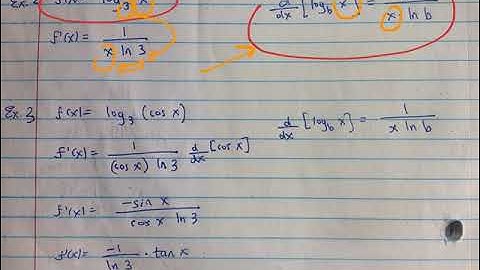 Ex. 2 f(x) = log₃ x
d/dx [log_b x] = 1/(x ln b)
f'(x) = 1/(x ln 3)
Ex. 3 f(x) = log₃ (cos x)
d/dx [log_b x] = 1/(x ln b)
f'(x) = 1/((cos x) ln 3) d/dx [cos x]
f'(x) = -sin x/(cos x ln 3)
f'(x) = -1/(ln 3) · tan x